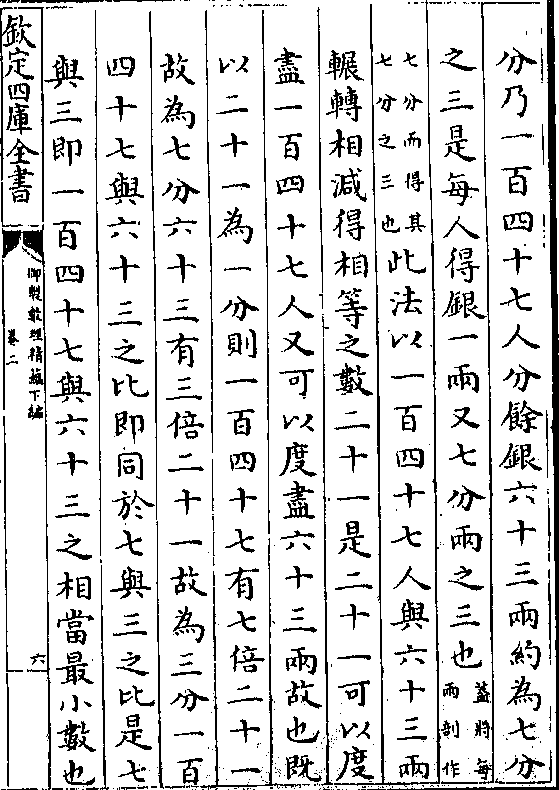 分乃一百四十七人分餘銀六十三兩約為七分
之三是每人得銀一兩又七分兩之三也蓋將每兩剖作
七分而得其七分之三也此法以一百四十七人與六十三兩
輾轉相減得相等之數二十一是二十一可以度
盡一百四十七人又可以度盡六十三兩故也既
以二十一為一分則一百四十七有七倍二十一
故為七分六十三有三倍二十一故為三分一百
四十七與六十三之比即同於七與三之比是七
與三即一百四十七與六十三之相當最小數也
欽定四庫全書
御製數理精蘊下編
卷二
六